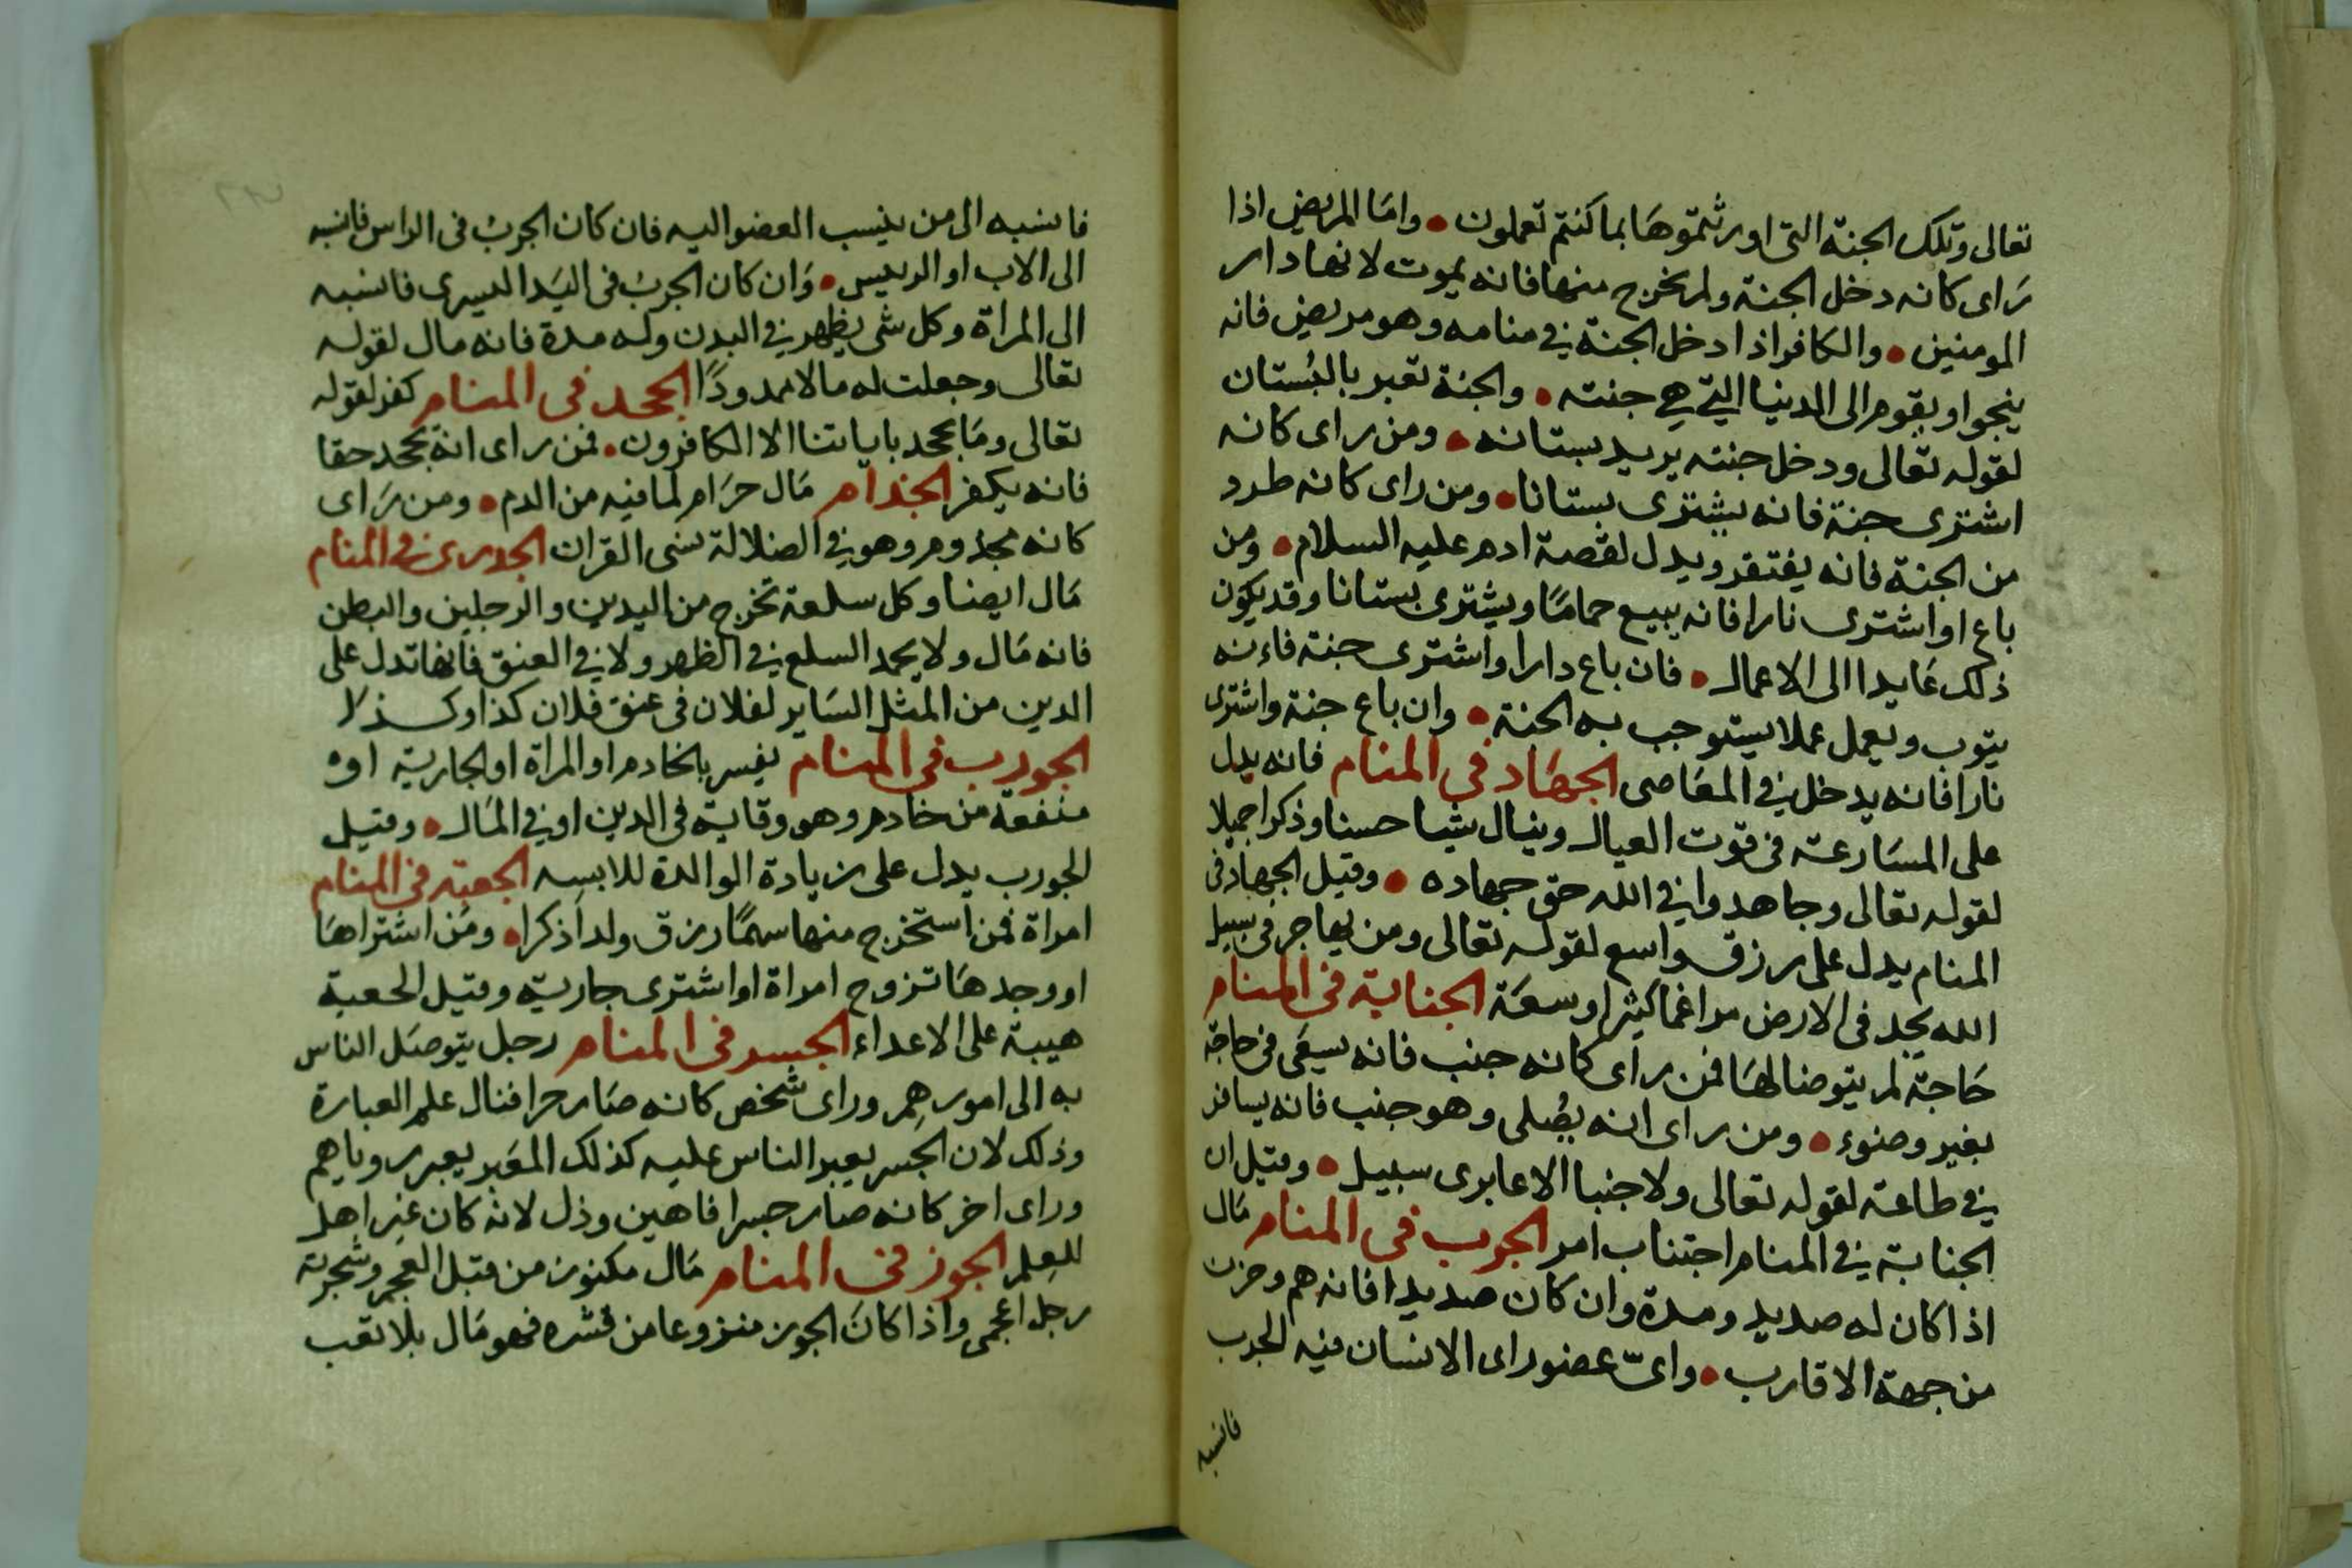 تعالى وتلك الجنة التى اورثتموها بما كنتم تعملون • واما المريض اذا
راى كانه دخل الجنة ولم يخرج منها فانه يموت لانها دار
المومنين • والكافر اذا دخل الجنة في منامه وهو مريض فانه
ينجوا ويقوم الى الدنيا التي هي جنته • والجنة تعبر بالبُستان
لقوله تعالى ودخل جنته يريد بستانه • ومن راى كانه
اشترى جنة فانه يشترى بستانا • ومن راى كانه طرد
من الجنة فانه يفتقر ويدل لقصة ادم عليه السلام • ومن
باع او اشترى نارا فانه يبيع حمامًا ويشترى بستانا وقد يكون
ذلك عايدا الى الاعمال • فان باع دارا واشترى جنة فاءنه
يتوب ويعمل عملا يستوجب به الجنة • وان باع جنة واشترى
نارا فانه يدخل في المعاصى الجهاد في المنام فانه يدل
على المسارعة فى قوت العيال وينال شيا حسنا وذكرا جميلا
لقوله تعالى وجاهدوا في الله حق جهاده • وقيل الجهاد فى
المنام يدل على رزق واسع لقوله تعالى ومن يهاجر فى سبيل
الله يجد فى الارض مراغما كثيرا وسعة الجنابة فى المنام
حاجة لم يتوضا لها فمن راى كانه جنب فانه يسعى فى حاجة
بغير وضوء • ومن راى انه يصُلى وهو جنب فانه يسافر
في طاعة لقوله تعالى ولا جنبا الا عابرى سبيل • وقيل ان
الجنابة في المنام اجتناب امر الجرب فى المنام مال
اذا كان له صديد ومدة وان كان صديدا فانه هم وحزن
من جهة الاقارب • واىّ عضو راى الانسان فيه الجرب
فانسبه
فانسبه الى من ينسب العضو اليه فان كان الجربُ فى الراس فانسبه
الى الاب او الرييس • وان كان الجربُ فى اليَد اليسرى فانسبه
الى المراة وكل شى يظهر في البدن وله مدة فانه مال لقوله
تعالى وجعلت له مالا ممدودًا الجحد فى المنام كفر لقوله
تعالى وما يجحد باياتنا الا الكافرون • فمن راى انه يجحد حقا
فانه يكفر الجذام مال حرَام لما فيه من الدم • ومن رَاى
كانه مجذوم وهو في الضلالة نسى القران الجدرى في المنام
مال ايضا وكل سلعة تخرج من اليدين والرجلين والبطن
فانه مال ولا يحمد السلع في الظهر ولا في العنق فانها تدل على
الدين من المثل السَاير لفلان فى عنق فلان كذا وكذا
الجورب فى المنام يفسر بالخادم او المراة او الجارية او
منفعة من خادم وهو وقاية فى الدين او في المَال • وقيل
الجورب يدل على زيادة الوالدة للابسه الجعبة فى المنام
امراة فمن استخرج منها سهمًا رزق ولدا ذكرا • ومن اشتراها
او وجدها تزوج امراة او اشترى جارية وقيل الجعبة
هيبة على الاعداء الجسر فى المنام رجل يتوصَل الناس
به الى امورهِم وراى شخص كانه صَار جسرا فنال علم العبارة
وذلك لان الجسر يعبر الناس عليه كذلك المعَبر يعبر روياهم
وراى اخر كانه صار جسرا فاهين وذل لانه كان غير اهل
للعِلم الجوز فى المنام مال مكنوز من قبل العجم وشجرته
رجل اعجمى واذا كانَ الجوز منزوعا من قشره فهو مَال بلا تعب